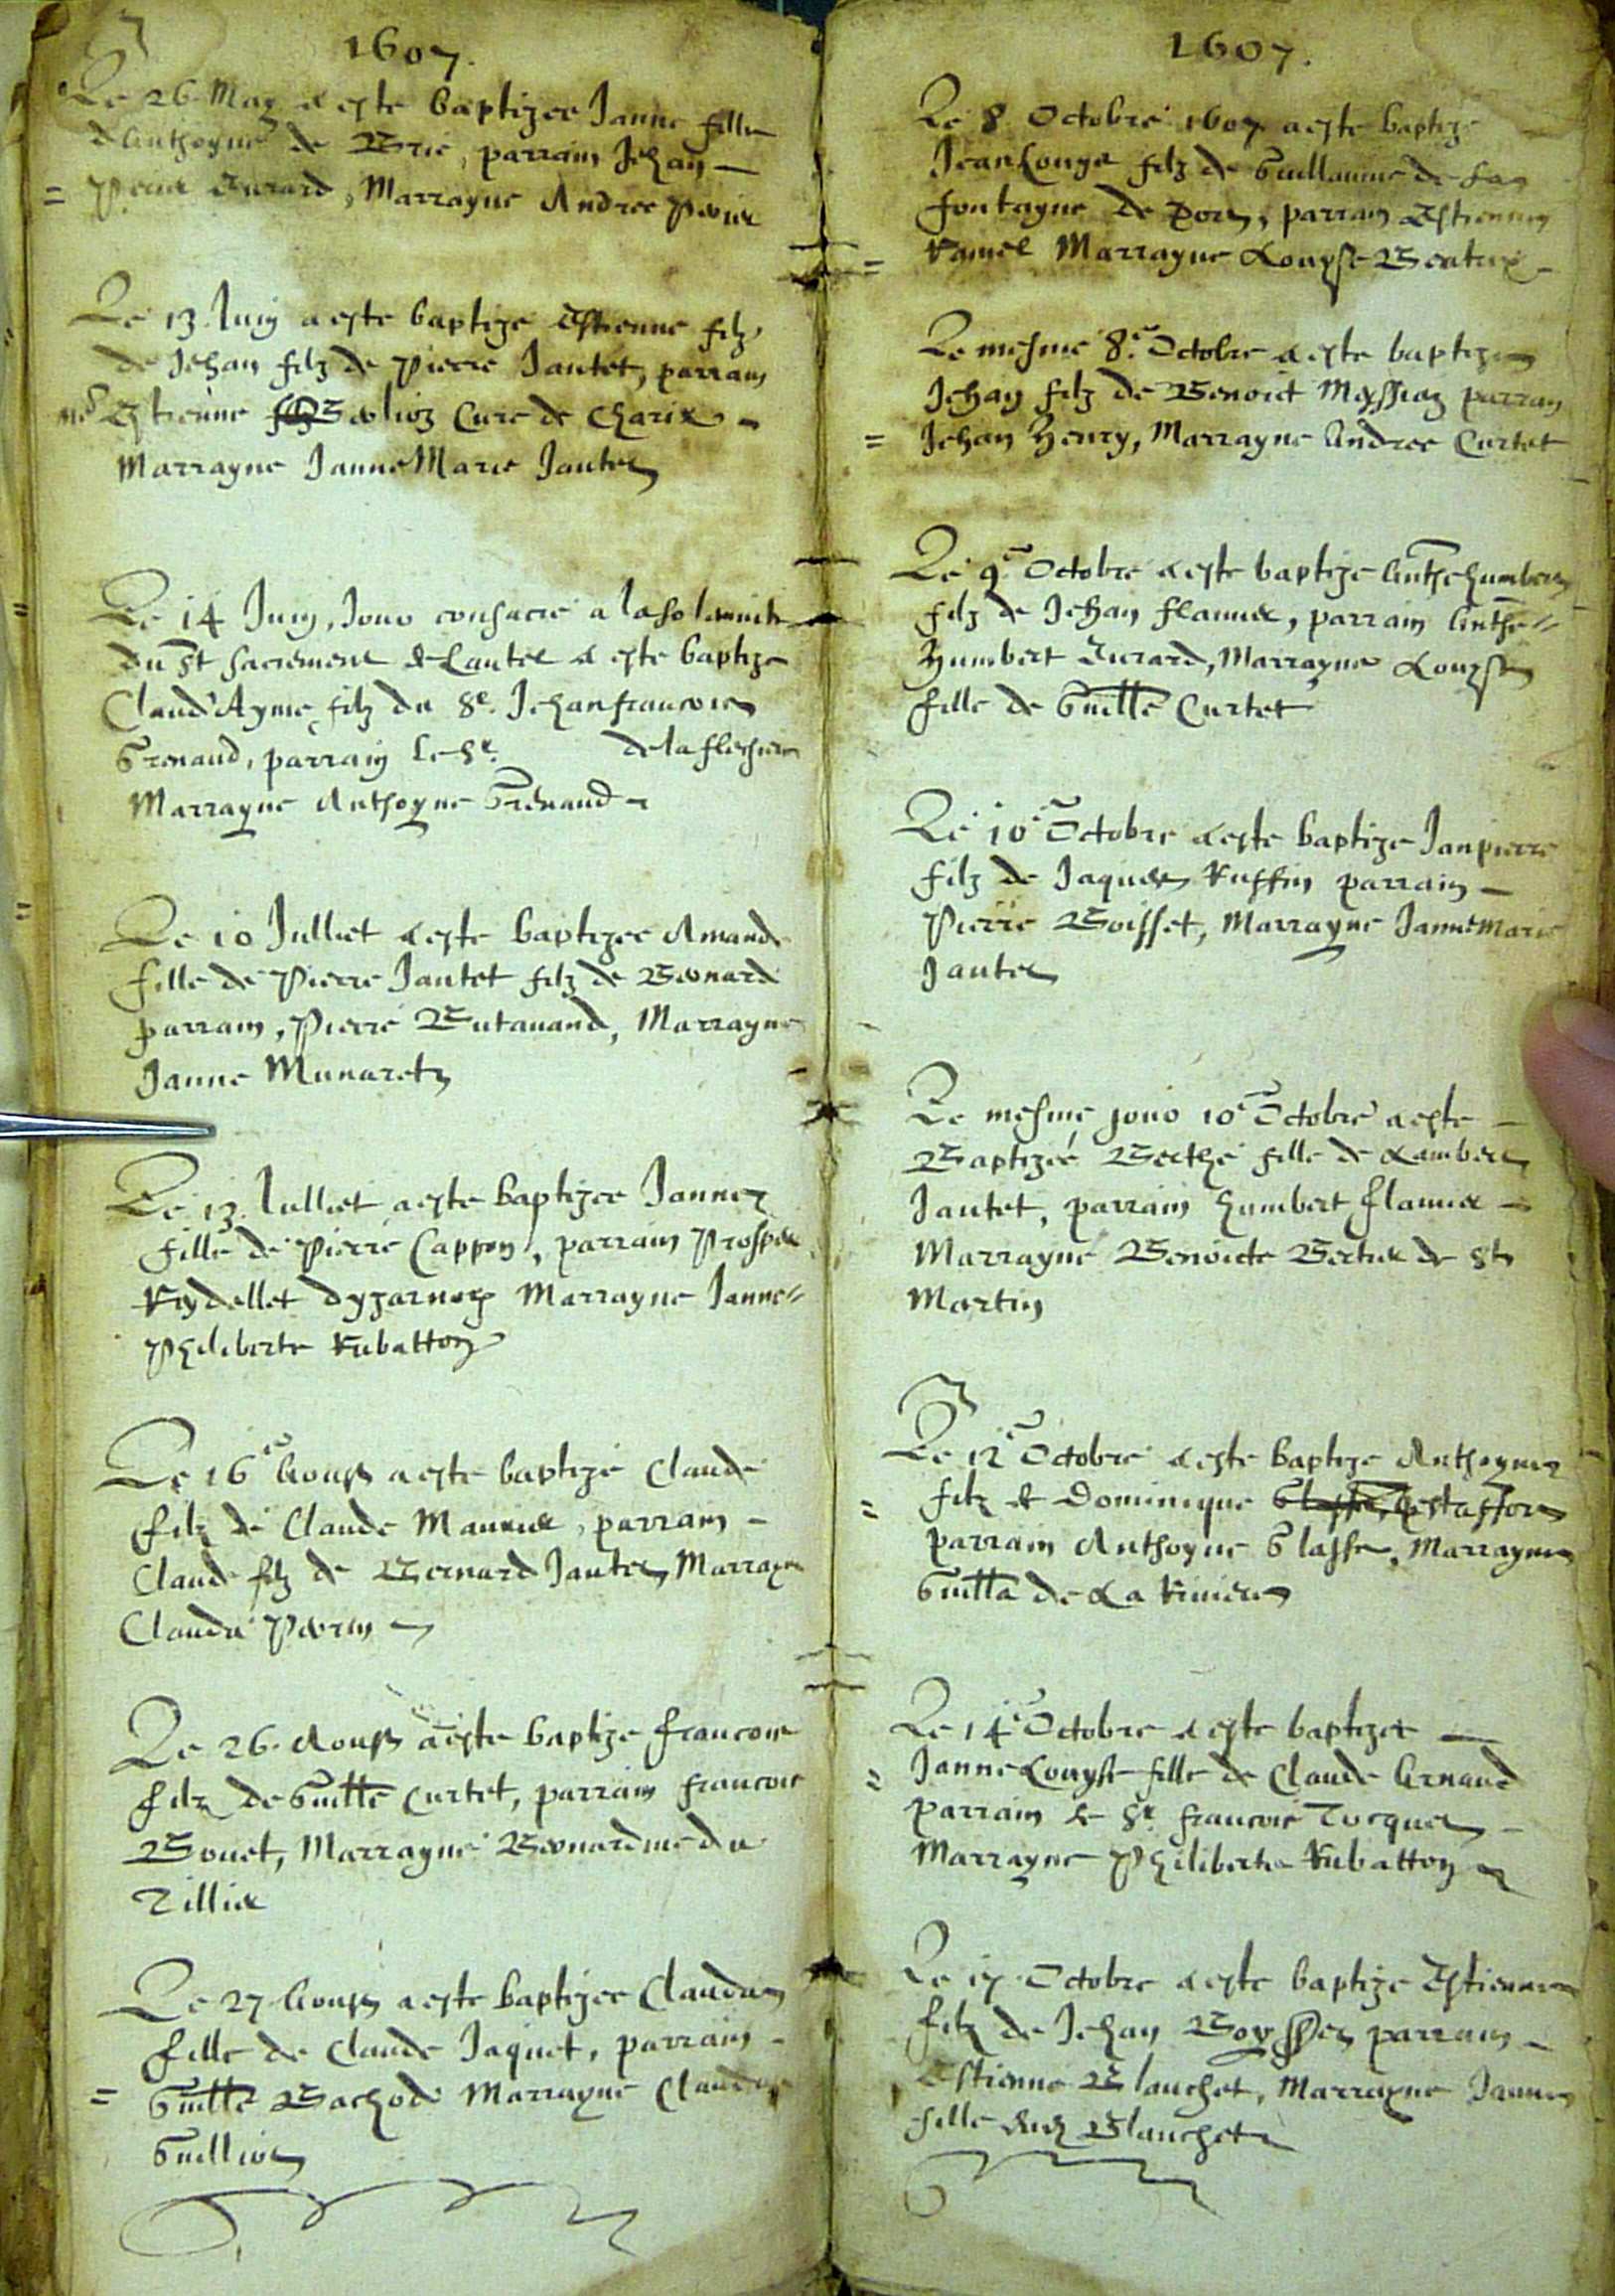 1607.
Le 26 May a este baptizee Janne fille
d'Anthoyne de Brie, parrain Jehan
Marrayne Andree
Le 13 Juin a este baptize Estienne filz
de Jehan filz de Pierre Jantet, parrain
Estienne Cure de Charix
Marrayne JanneMarie Jantet
Le 14 Juin, Jour consacre a la solemnite
du St Sacrement de Lautel a este baptize
Claud'Ayme filz du Sr. Jehanfrancois
Grenaud, parrain Le Sr. de la flechiere
Marrayne Anthoyne Grenaud
Le 10 Julliet a este baptizee Amande
fille de Pierre Jantet filz de Bernard
parrain, Pierre Butavand, Marrayne
Janne Munaretz
Le 13 Julliet a este baptizee Janne
fille de Pierre Cappon, parrain Prosper
Reydellet dyzarnore Marrayne Janne=
Philiberte Rubatton
Le 16e Aoust a este baptize Claude
filz de Claude parrain
Claude filz de Bernard Jantet Marrayne
Clauda Perrin
Le 26 Aoust a este baptize francois
filz de Guille Curtet, parrain francois
Bouet, Marrayne Bernardine du
Tillier
Le 27 Aoust a este baptizee Clauda
fille de Claude Jaquet, parrain
Guille Bachod Marrayne Clauda
1607.
Le 8 Octobre 1607 a este baptize
JeanLouys filz de Guillaume de la
fontayne de Port, parrain Estienne
Ramel Marrayne Louyse Beatrix
Le mesme 8e Octobre a este baptize
Jehan filz de Benoict parrain
Jehan Henry, Marrayne Andree Curtet
Le 9e Octobre a este baptize Anthehumbert
filz de Jehan flamier, parrain Anthe=
Humbert Jurard, Marrayne Louyse
fille de Guille Curtet
Le 10e Octobre a este baptize Janpierre
filz de Jaques Ruffin parrain
Pierre Boisset, Marrayne Jannemarie
Jantet
Le mesme jour 10e Octobre a este
Baptizee Berthe fille de Lambert
Jantet, parrain humbert flamier
Marrayne Benoicte Bertier de St
Martin
Le 12e Octobre a este baptize Anthoyne
filz de Dominique
parrain Anthoyne Glasse, Marrayne
Guilla de La Riviere
Le 14e Octobre a este baptizee
JanneLouyse fille de Claude Arnaud
parrain le Sr francois Tocquet
Marrayne Philiberte Rubatton
Le 17 Octobre a este baptize Estienne
filz de Jehan parrain
Estienne Blanchet, Marrayne Janne
fille Blanchet